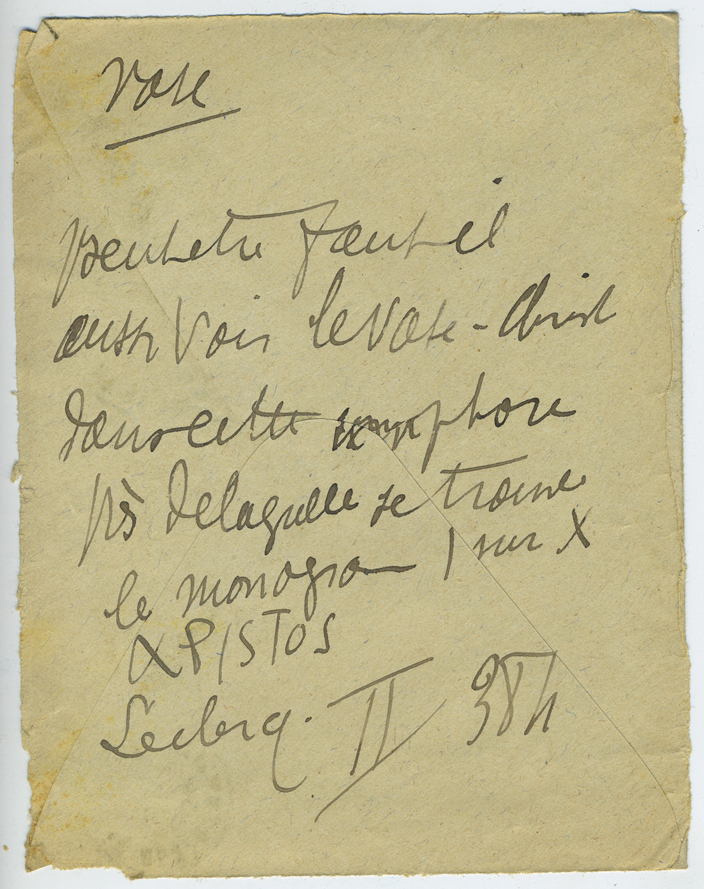 vase
peut etre faut il
aussi voir le vase-Christ
dans cette amphore
près de laquelle se trouve
le monogram I sur X
XPISTOS
Leclercq. II 384